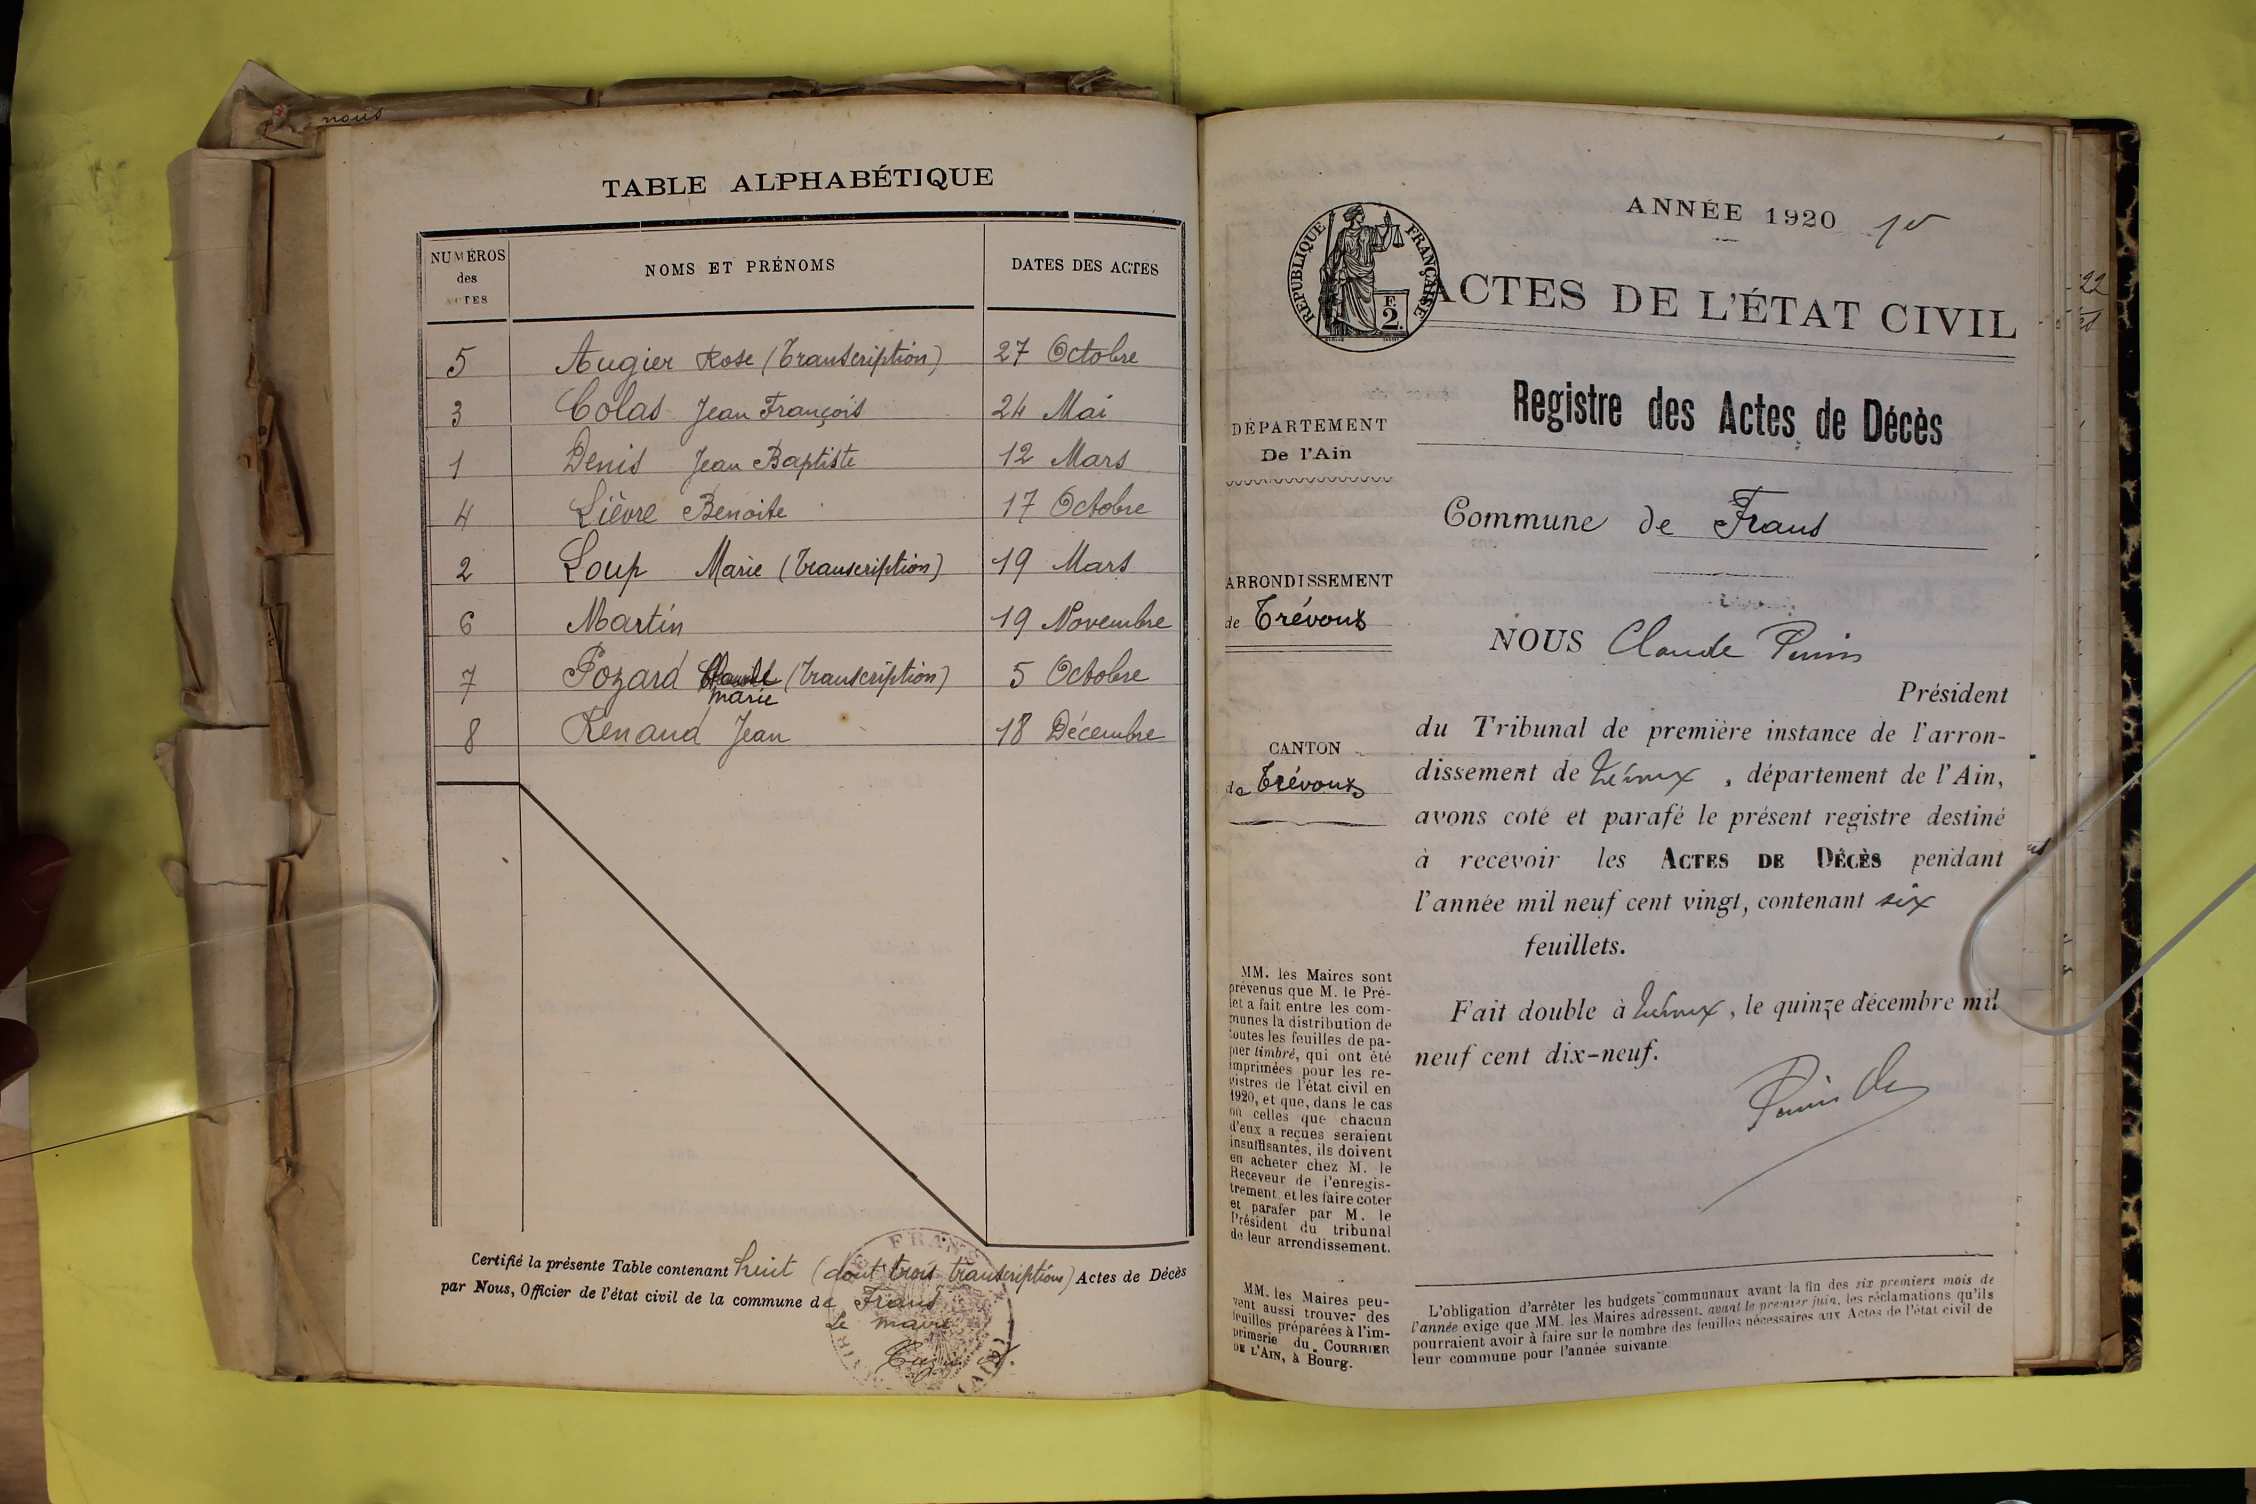 nous
TABLE ALPHABÉTIQUE
NUMÉROS des ACTES NOMS ET PRÉNOMS DATES DES ACTES
5 Augier Rose (Transcription) 27 Octobre
3 Colas Jean François 24 Mai
1 Denis Jean Baptiste 12 Mars
4 Lièvre Benoite 17 Octobre
2 Loup Marie (Transcription) 19 Mars
6 Martin 19 Novembre
7 Pozard marie (Transcription) 5 Octobre
8 Renaud Jean 18 Décembre
Certifié la présente Table contenant huit (dont trois transcriptions) Actes de Décès
par Nous, Officier de l'état civil de la commune de Frans
Le maire
ANNÉE 1920 1er
RÉPUBLIQUE FRANÇAISE
F. 2.
ACTES DE L'ÉTAT CIVIL
Registre des Actes de Décès
DÉPARTEMENT
De l'Ain
Commune de Frans
ARRONDISSEMENT
de Trévoux
CANTON
de Trévoux
NOUS Claude Perrin
Président
du Tribunal de première instance de l'arron-
dissement de Trévoux, département de l'Ain,
avons coté et parafé le présent registre destiné
à recevoir les ACTES DE DÉCÈS pendant
l'année mil neuf cent vingt, contenant six
feuillets.
Fait double à Trévoux, le quinze décembre mil
neuf cent dix-neuf.
MM. les Maires sont
prévenus que M. le Pré-
fet a fait entre les com-
munes la distribution de
toutes les feuilles de pa-
pier timbré, qui ont été
imprimées pour les re-
gistres de l'état civil en
1920, et que, dans le cas
où celles que chacun
d'eux a reçues seraient
insuffisantes, ils doivent
en acheter chez M. le
Receveur de l'enregis-
trement et les faire coter
et parafer par M. le
Président du tribunal
de leur arrondissement.
MM. les Maires peu-
vent aussi trouver des
feuilles préparées à l'im-
primerie du COURRIER
DE L'AIN, à Bourg.
L'obligation d'arrêter les budgets communaux avant la fin des six premiers mois de
l'année exige que MM. les Maires adressent, avant le premier juin, les réclamations qu'ils
pourraient avoir à faire sur le nombre des feuilles nécessaires aux Actes de l'état civil de
leur commune pour l'année suivante